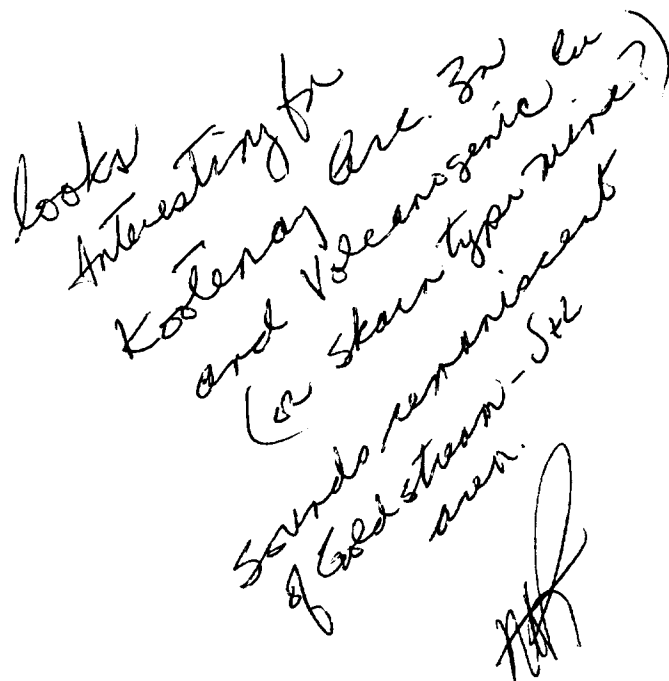 looks
Interesting for
Kootenay Arc. Zn Cu
and Volcanogenic
(or skarn type mine?)
sounds remaniscent
of Goldstream -
area.